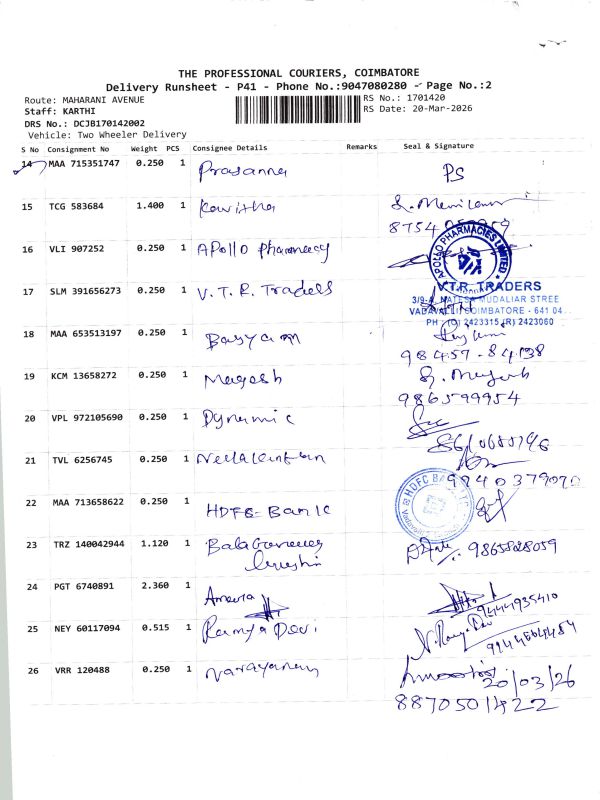 THE PROFESSIONAL COURIERS, COIMBATORE
Delivery Runsheet - P41 - Phone No.:9047080280 - Page No.:2
Route: MAHARANI AVENUE
RS No.: 1701420
Staff: KARTHI
RS Date: 20-Mar-2026
DRS No.: DCJB170142002
Vehicle: Two Wheeler Delivery
S No Consignment No Weight PCS Consignee Details Remarks Seal & Signature
14 MAA 715351747 0.250 1 Prasanna PS
15 TCG 583684 1.400 1 Kavitha
8754
16 VLI 907252 0.250 1 Apollo Pharmacy
APOLLO PHARMACIES LIMITED
17 SLM 391656273 0.250 1 V.T.R. Traders
V.T.R. TRADERS
3/9-A, NATESA MUDALIAR STREE
VADAVALLI, COIMBATORE - 641 04
PH : (O) 2423315 (R) 2423060
18 MAA 653513197 0.250 1
98457-84138
19 KCM 13658272 0.250 1 Magesh
986599954
20 VPL 972105690 0.250 1 Dynamic
21 TVL 6256745 0.250 1 Neelakantan
9740379070
22 MAA 713658622 0.250 1 HDFC Bank
HDFC BANK LTD
23 TRZ 140042944 1.120 1
9865828059
24 PGT 6740891 2.360 1
9444935410
25 NEY 60117094 0.515 1 Ramya Devi
26 VRR 120488 0.250 1 Narayanan
20/03/26
8870501422